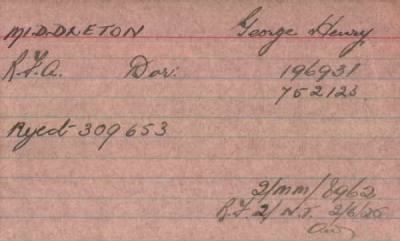 MIDDLETON George Henry
R.F.A. Dvr: 196931
752123.
Reject 309653
2/MM/8962
R.F. 2/N.I. 2/6/25